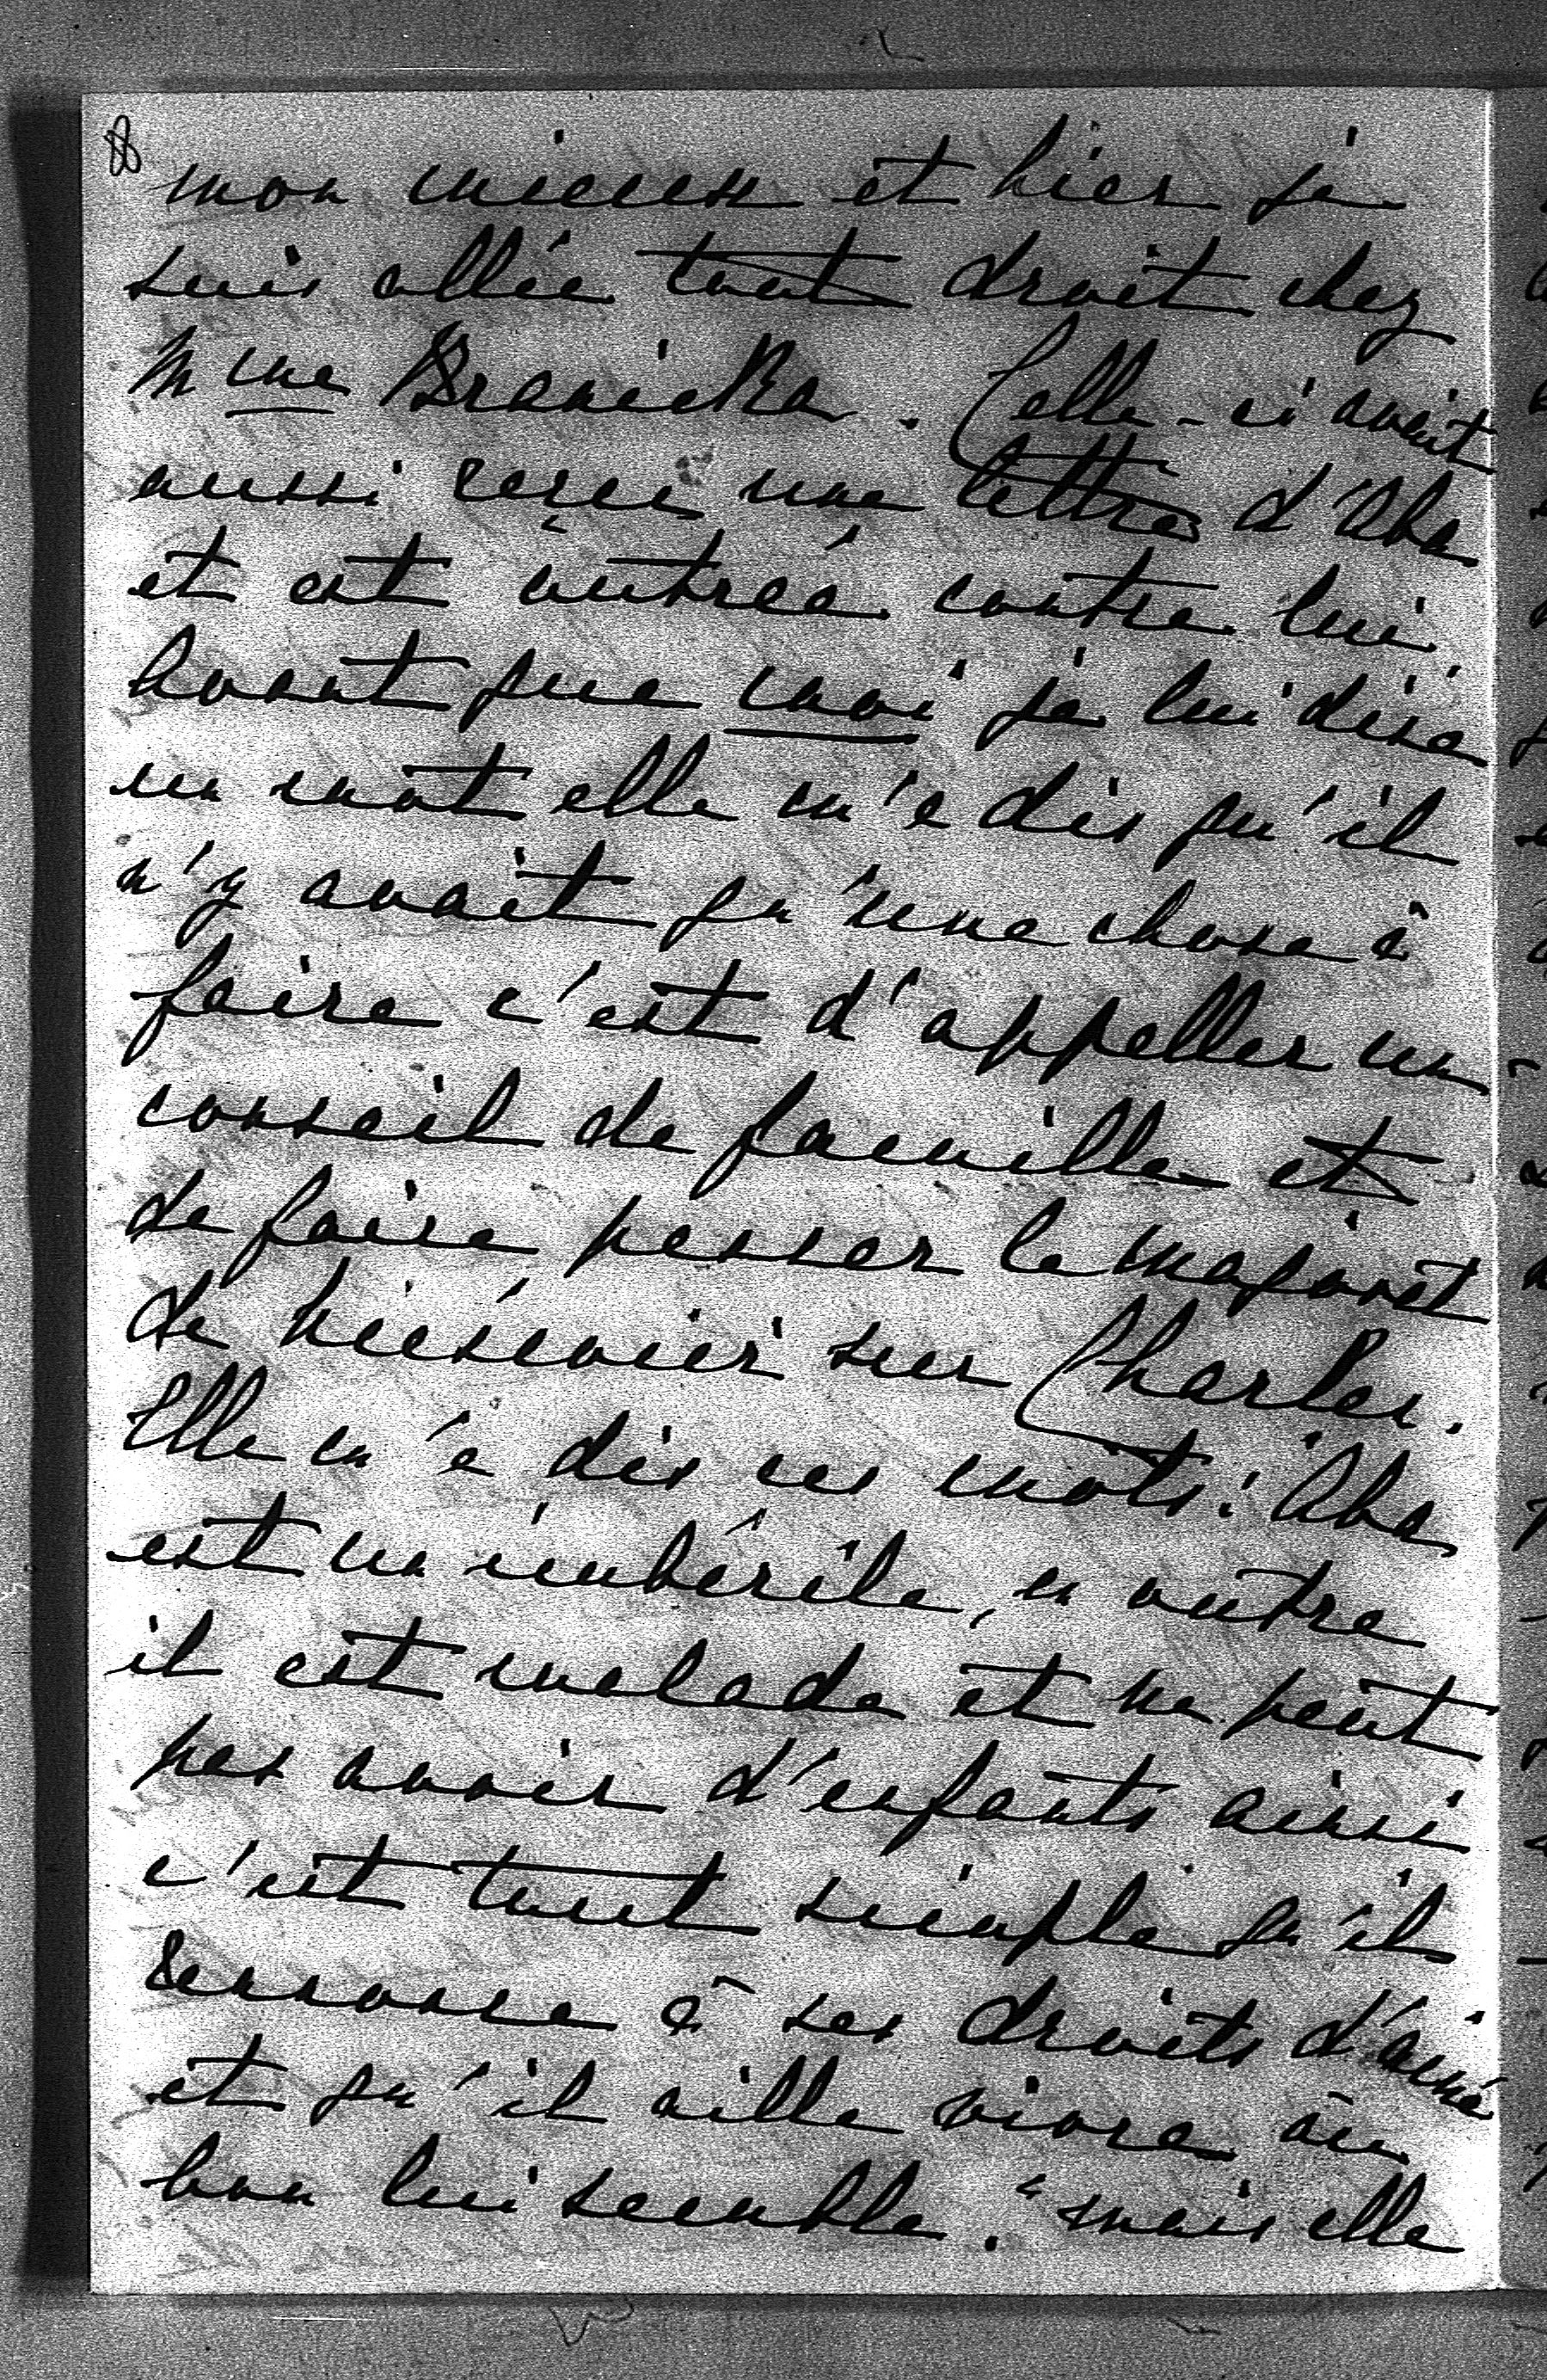 8
mon mieux et hier je
suis allée tout droit chez
Mme Branicka. Celle-ci avait
aussi reçue une lettre d'Aba
et est outrée contre lui.
Avant que moi je lui dise
un mot elle m'a dis qu'il
n'y avait qu'une chose à
faire c'est d'appeller un
conseil de famille et
de faire passer le majorat
de Niéswiéz sur Charles.
Elle m'a dis ces mots: Aba
est un imbécile, en outre
il est malade et ne peut
pas avoir d'enfants ainsi
c'est tout simple qu'il
renonce à ses droits d'ainé
et qu'il aille vivre où
bon lui semble." mais elle